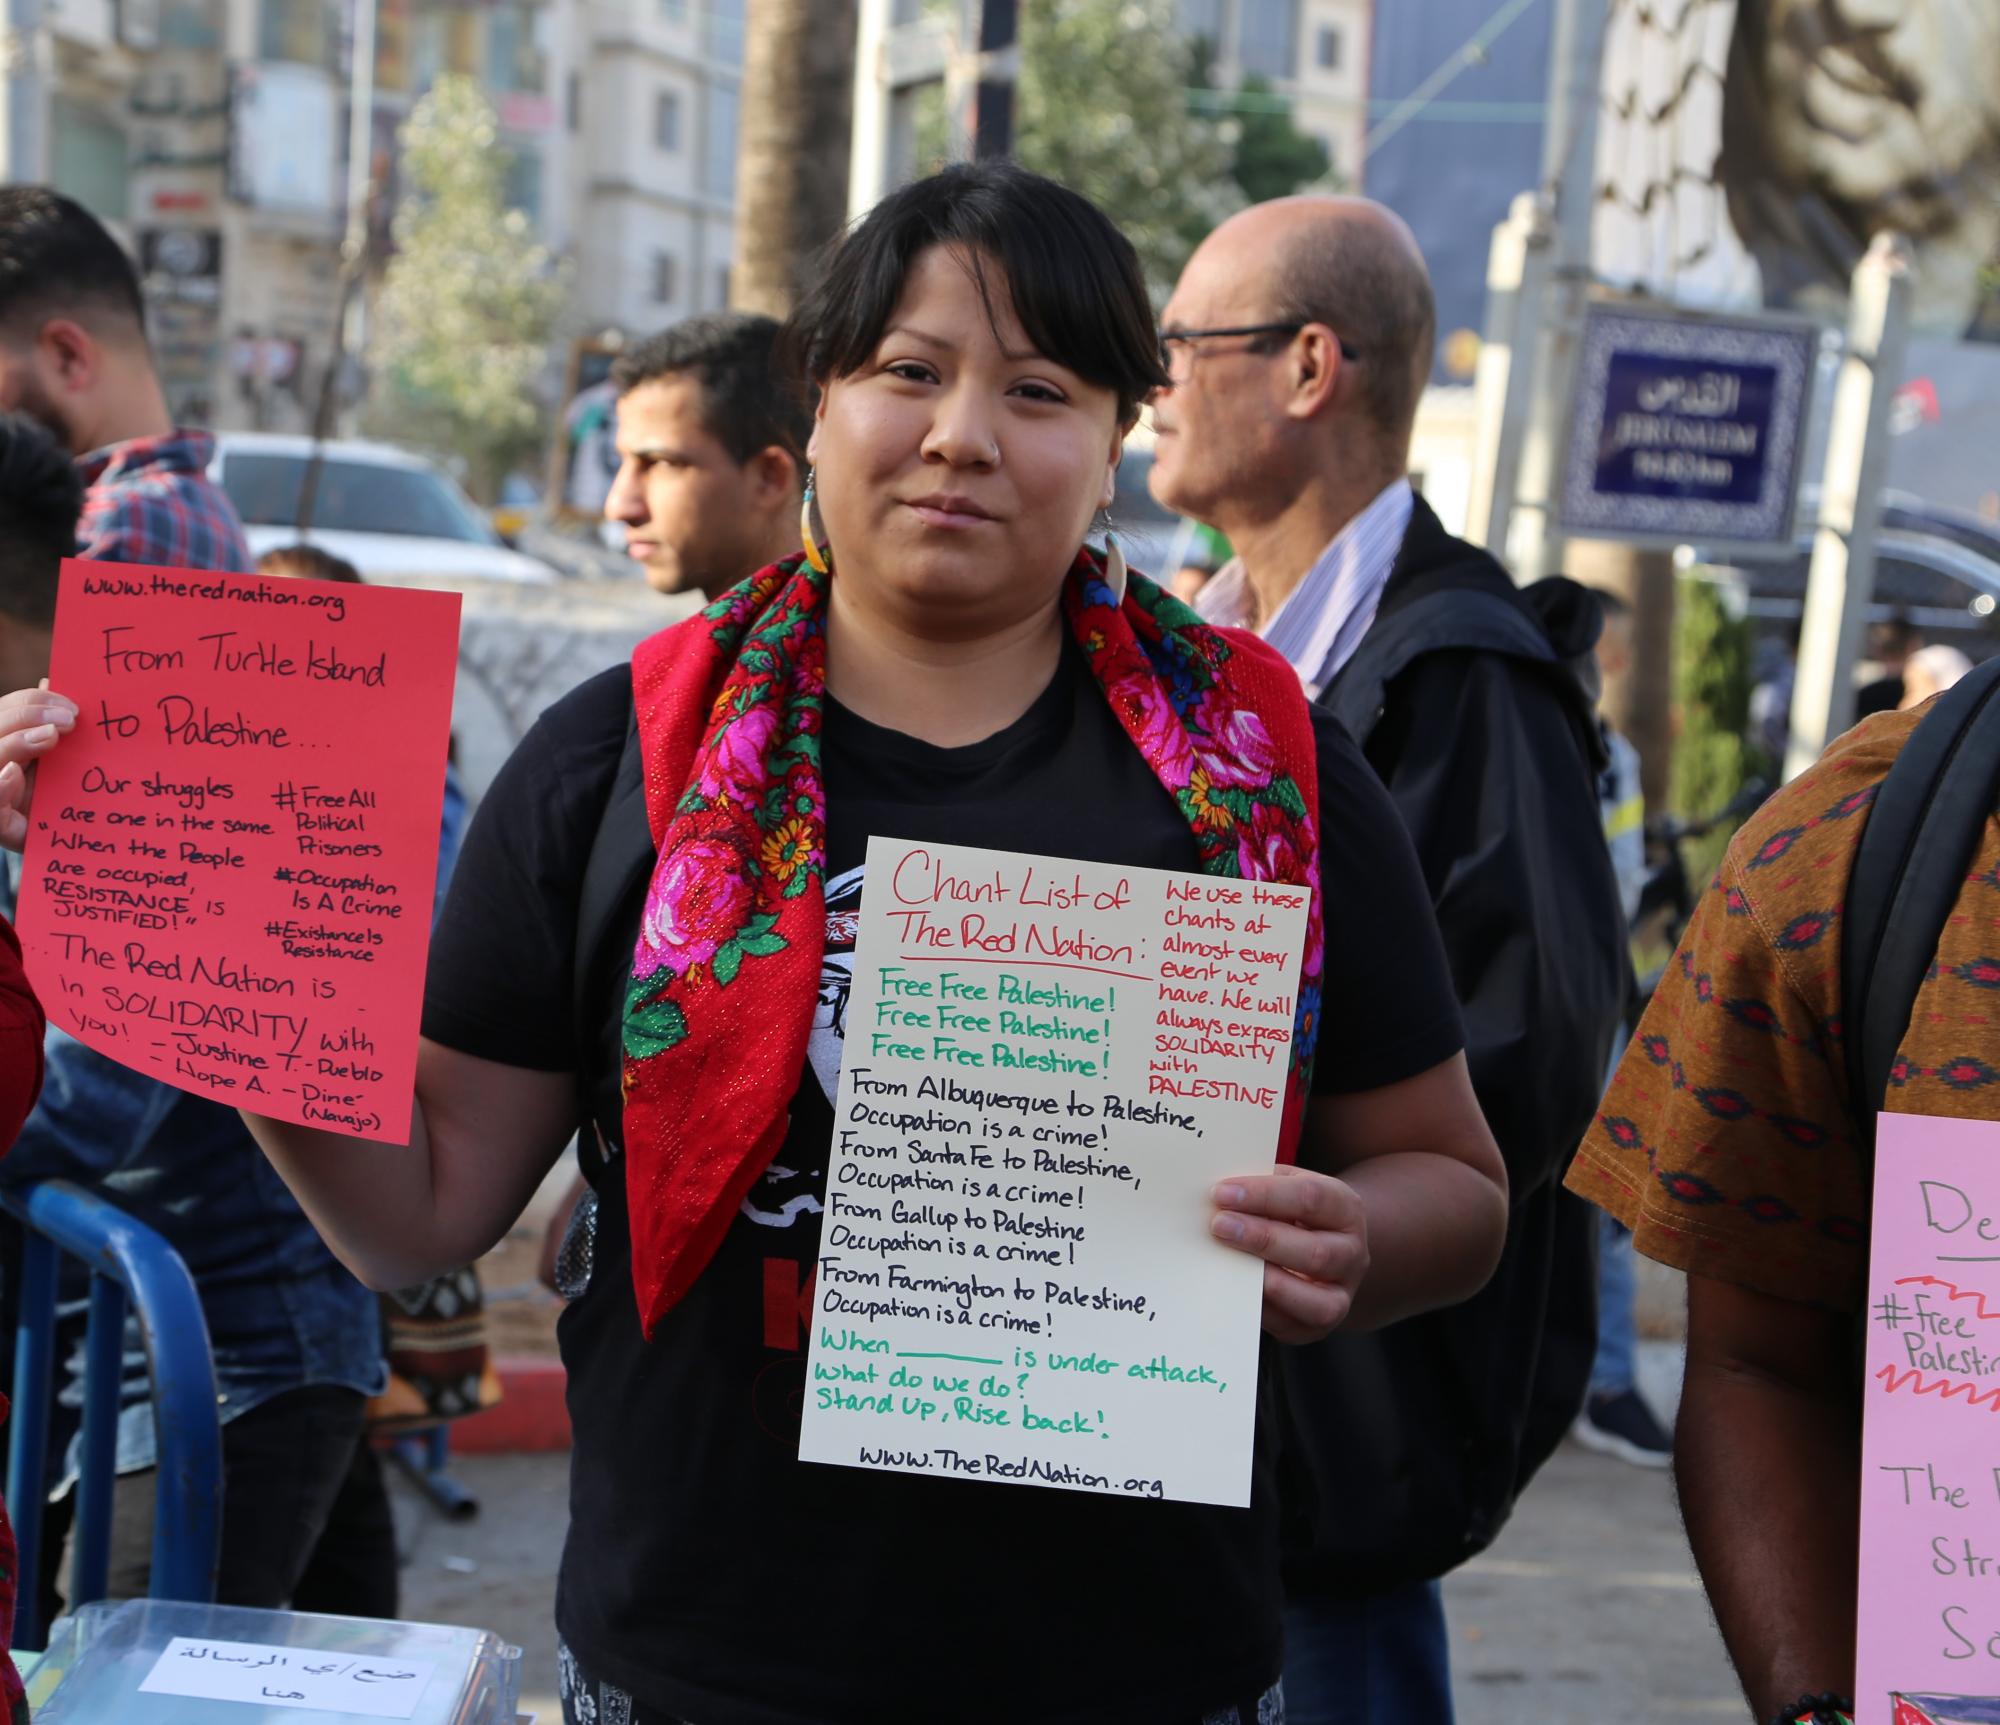 www.therednation.org
From Turtle Island
to Palestine...
Our struggles
are one in the same.
"When the People
are occupied,
RESISTANCE is
JUSTIFIED!"
#FreeAll
Political
Prisoners
#Occupation
Is A Crime
#ExistanceIs
Resistance
The Red Nation is
in SOLIDARITY with
you! - Justine T. - Pueblo
- Hope A. - Diné
(Navajo)
Chant List of
The Red Nation:
We use these
chants at
almost every
event we
have. We will
always express
SOLIDARITY
with
PALESTINE
Free Free Palestine!
Free Free Palestine!
Free Free Palestine!
From Albuquerque to Palestine,
Occupation is a crime!
From Santa Fe to Palestine,
Occupation is a crime!
From Gallup to Palestine
Occupation is a crime!
From Farmington to Palestine,
Occupation is a crime!
When ______ is under attack,
what do we do?
Stand Up, Rise back!
www.TheRedNation.org
القدس
JERUSALEM
De
#Free
Palestin
The
Str
So
ضع/ي الرسالة
هنا